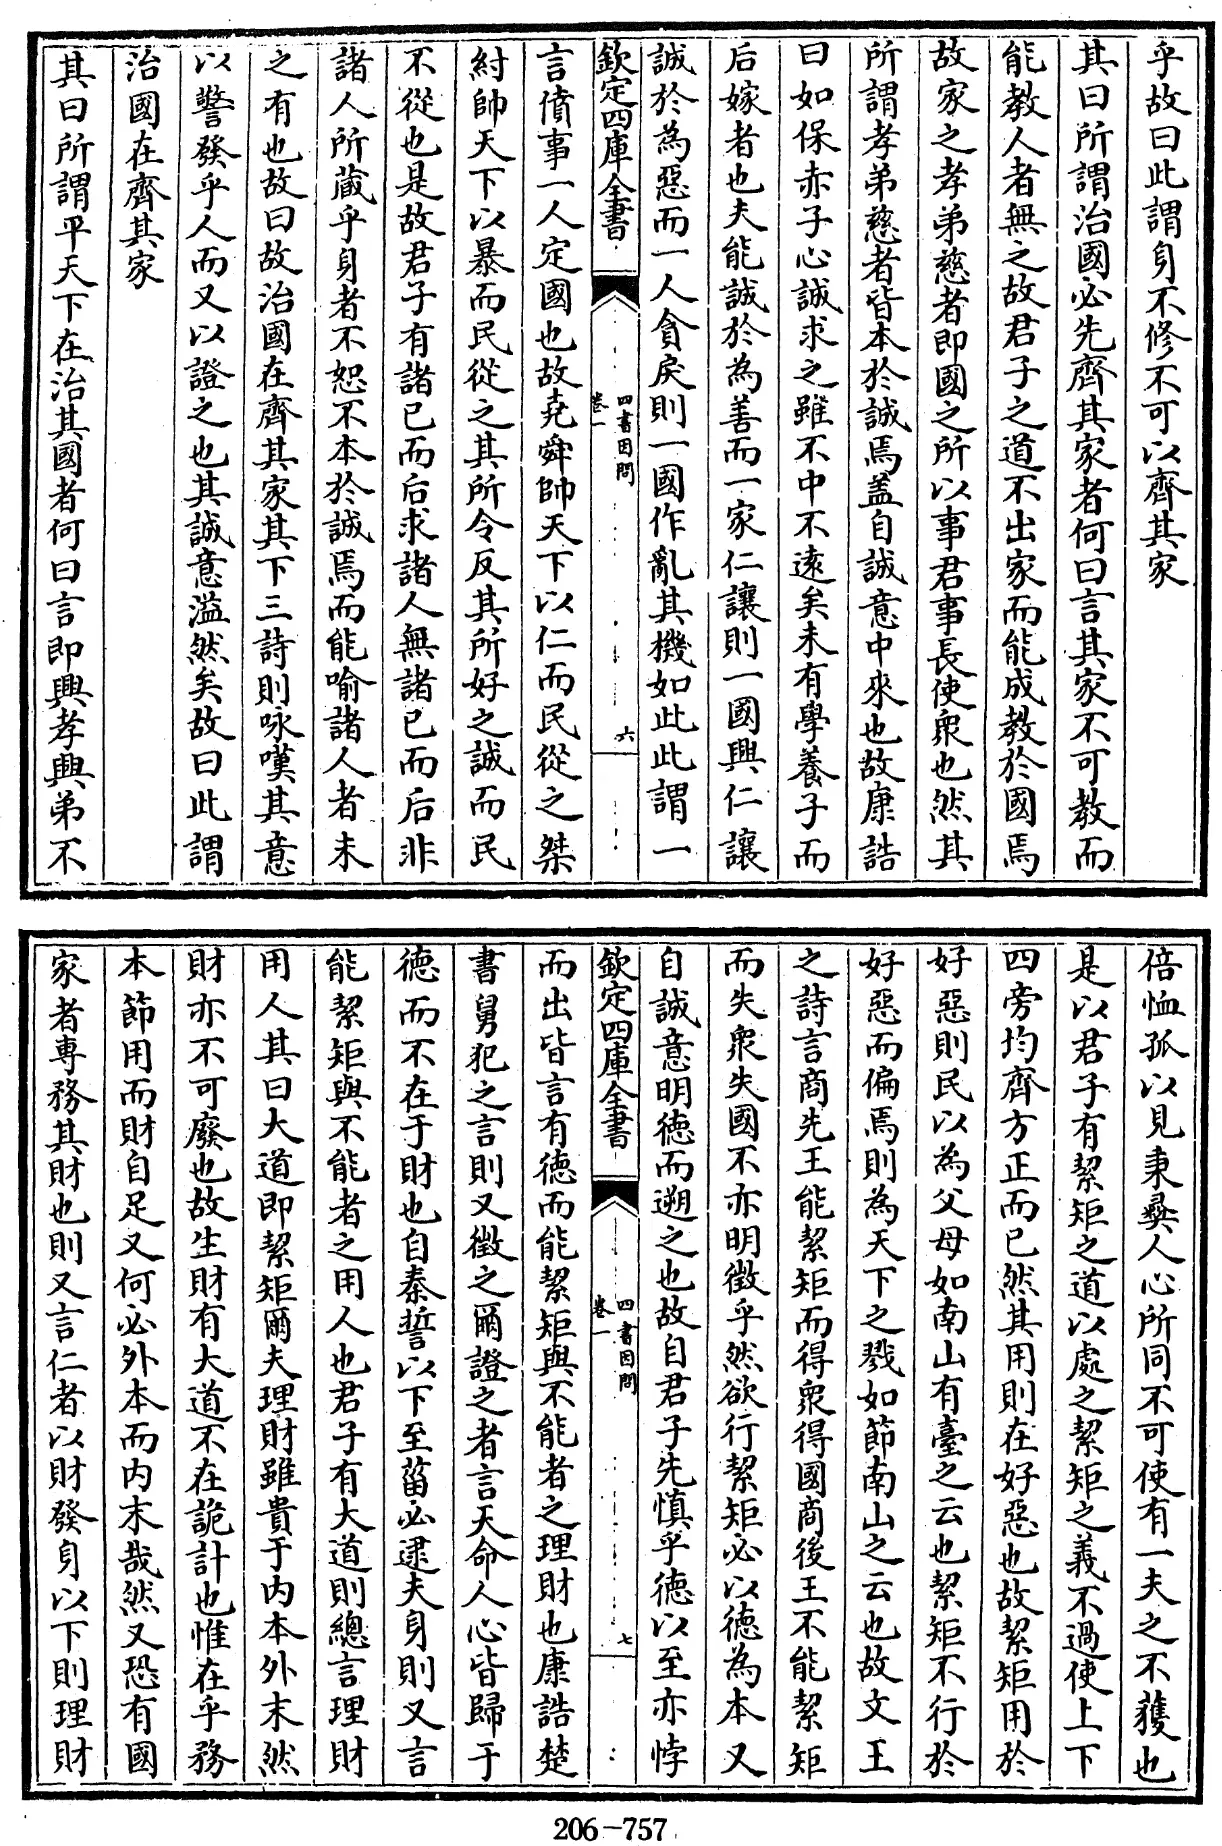 乎故曰此謂身不修不可以齊其家
其曰所謂治國必先齊其家者何曰言其家不可教而
能教人者無之故君子之道不出家而能成教於國焉
故家之孝弟慈者即國之所以事君事長使衆也然其
所謂孝弟慈者皆本於誠焉盖自誠意中來也故康誥
曰如保赤子心誠求之雖不中不遠矣未有學養子而
后嫁者也夫能誠於為善而一家仁讓則一國興仁讓
誠於為惡而一人貪戾則一國作亂其機如此此謂一
欽定四庫全書
四書因問
卷一
六
言僨事一人定國也故堯舜帥天下以仁而民從之桀
紂帥天下以暴而民從之其所令反其所好之誠而民
不從也是故君子有諸已而后求諸人無諸已而后非
諸人所藏乎身者不恕不本於誠焉而能喻諸人者未
之有也故曰故治國在齊其家其下三詩則咏嘆其意
以警發乎人而又以證之也其誠意溢然矣故曰此謂
治國在齊其家
其曰所謂平天下在治其國者何曰言即興孝興弟不
倍恤孤以見秉彝人心所同不可使有一夫之不獲也
是以君子有絜矩之道以處之絜矩之義不過使上下
四旁均齊方正而已然其用則在好惡也故絜矩用於
好惡則民以為父母如南山有臺之云也絜矩不行於
好惡而偏焉則為天下之戮如節南山之云也故文王
之詩言商先王能絜矩而得衆得國商後王不能絜矩
而失衆失國不亦明徵乎然欲行絜矩必以德為本又
自誠意明德而遡之也故自君子先慎乎德以至亦悖
欽定四庫全書
四書因問
卷一
七
而出皆言有德而能絜矩與不能者之理財也康誥楚
書舅犯之言則又徵之爾證之者言天命人心皆歸于
德而不在于財也自秦誓以下至菑必逮夫身則又言
能絜矩與不能者之用人也君子有大道則總言理財
用人其曰大道即絜矩爾夫理財雖貴于内本外末然
財亦不可廢也故生財有大道不在詭計也惟在乎務
本節用而財自足又何必外本而内末哉然又恐有國
家者專務其財也則又言仁者以財發身以下則理財
206-757